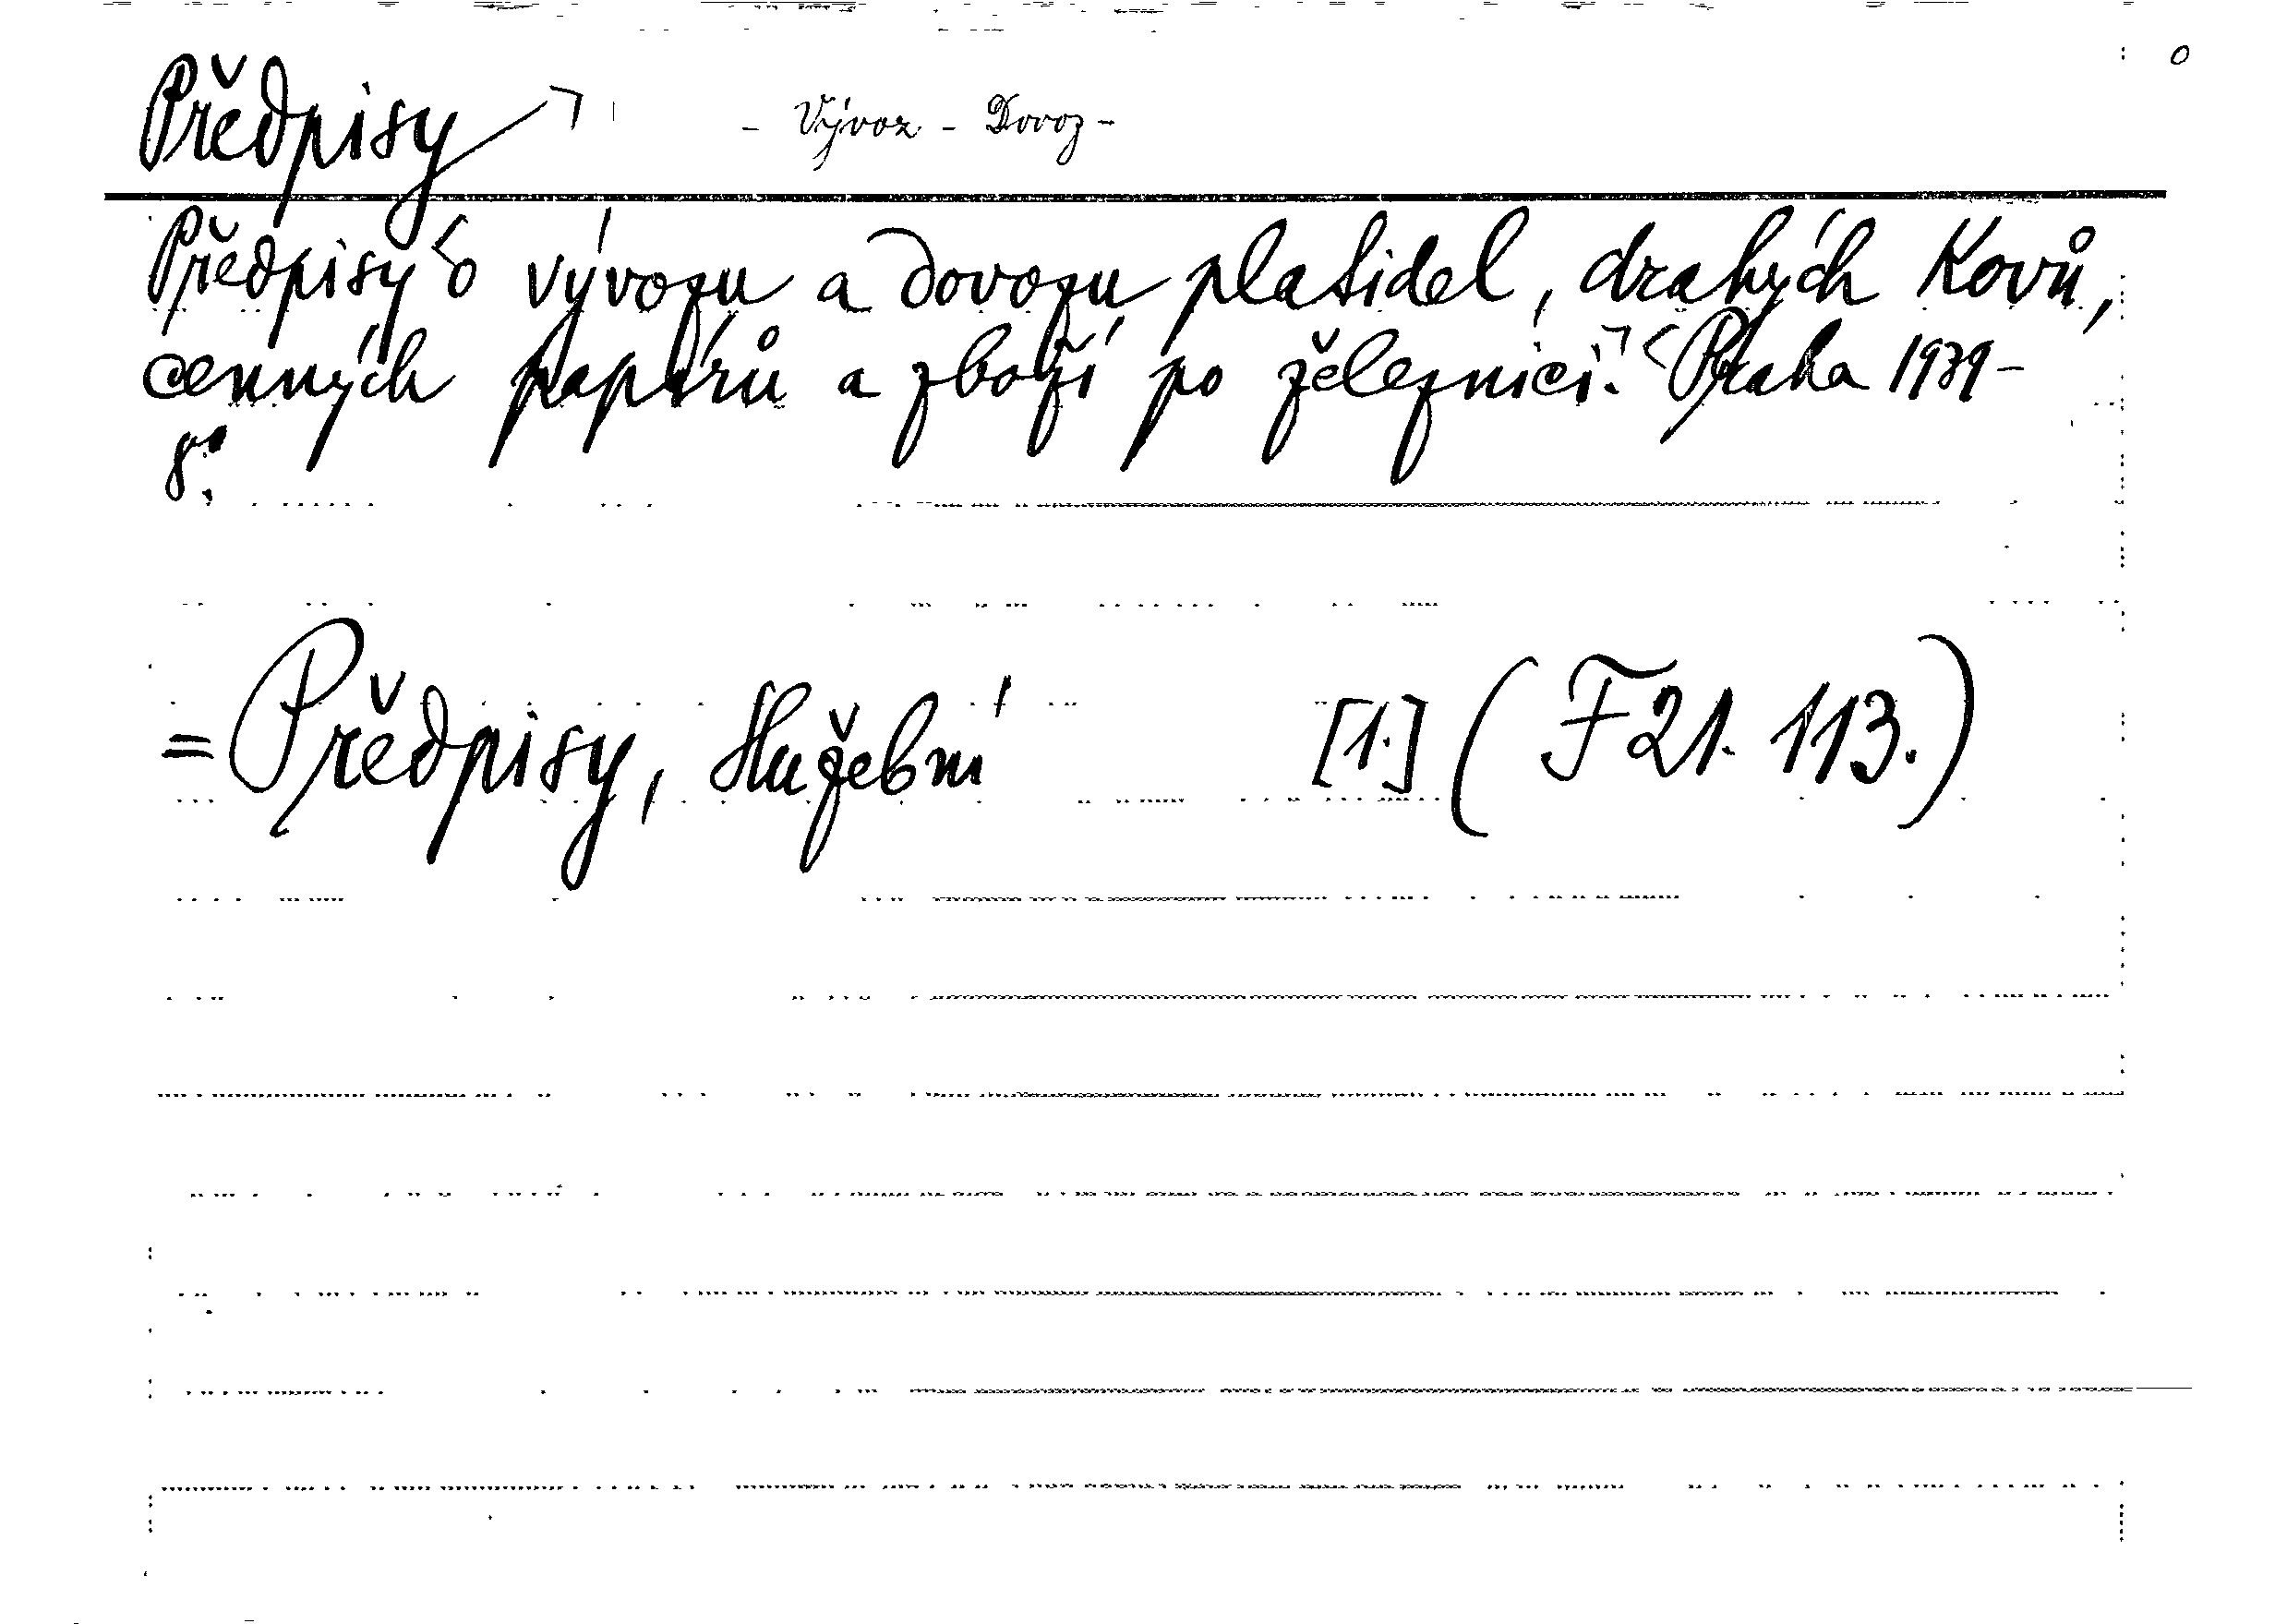 Předpisy ⌝ - Vývoz - Dovoz -
o
Předpisy ⌜o vývozu a dovozu platidel, drahých kovů,
cenných papírů a zboží po železnici.⌝ ⌜Praha 1939-
8°.
= Předpisy, služební [1.] (F 21. 113.)